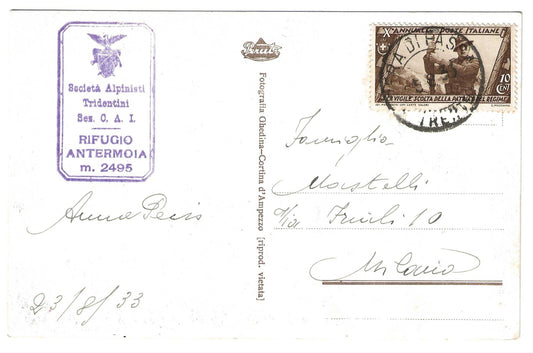 Società Alpinisti
Tridentini
Sez. C. A. I.
RIFUGIO
ANTERMOIA
m. 2495
Anna
23/8/33
Fotografia Ghedina-Cortina d'Ampezzo [riprod. vietata]
X° ANNUALE POSTE ITALIANE
10
CENT
VIGILE SCOLTA DELLA PATRIA DEL REGIME
Famiglia
Mastelli
Via Friuli 10
Milano